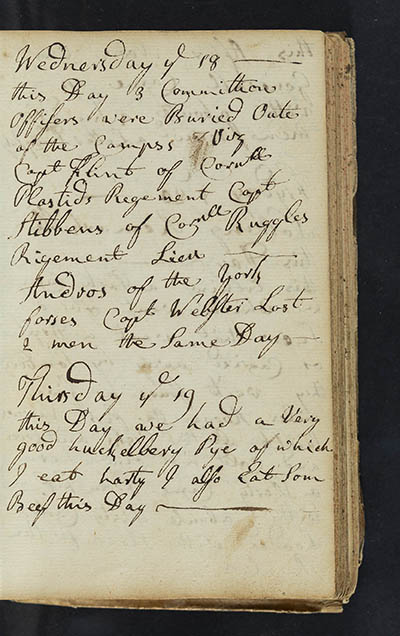 Wednersday ye 18
this Day 3 Committion
Offisers were Buried Oute
of the Campss Viz
Capt Flint of Cornll
Plastids Regement Capt
Stibbens of Cornll Ruggles
Rigement Lieu
Andros of the York
forses Capt Webster Lost
2 men the Same Day
Thirsday ye 19
this Day we had a Very
good huckelbery Pye of which
I eat harty I also Eat Som
Beef this Day